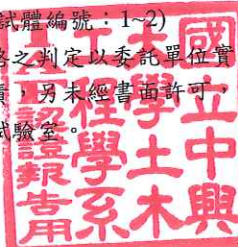 試體編號：1~2)
格之判定以委託單位實
責，另未經書面許可，
試驗室。
國立中興
大學土木
工程學系
認證報告用